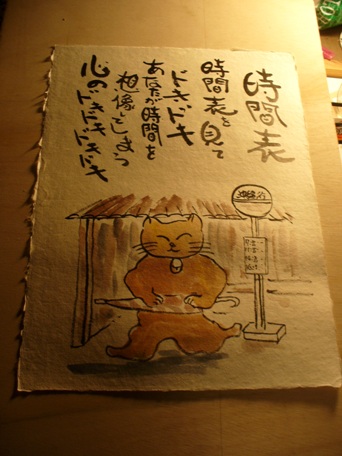 時間表
時間表を見て
ドキドキ
あなたが時間を
想像してしまう
心のドキドキドキドキ